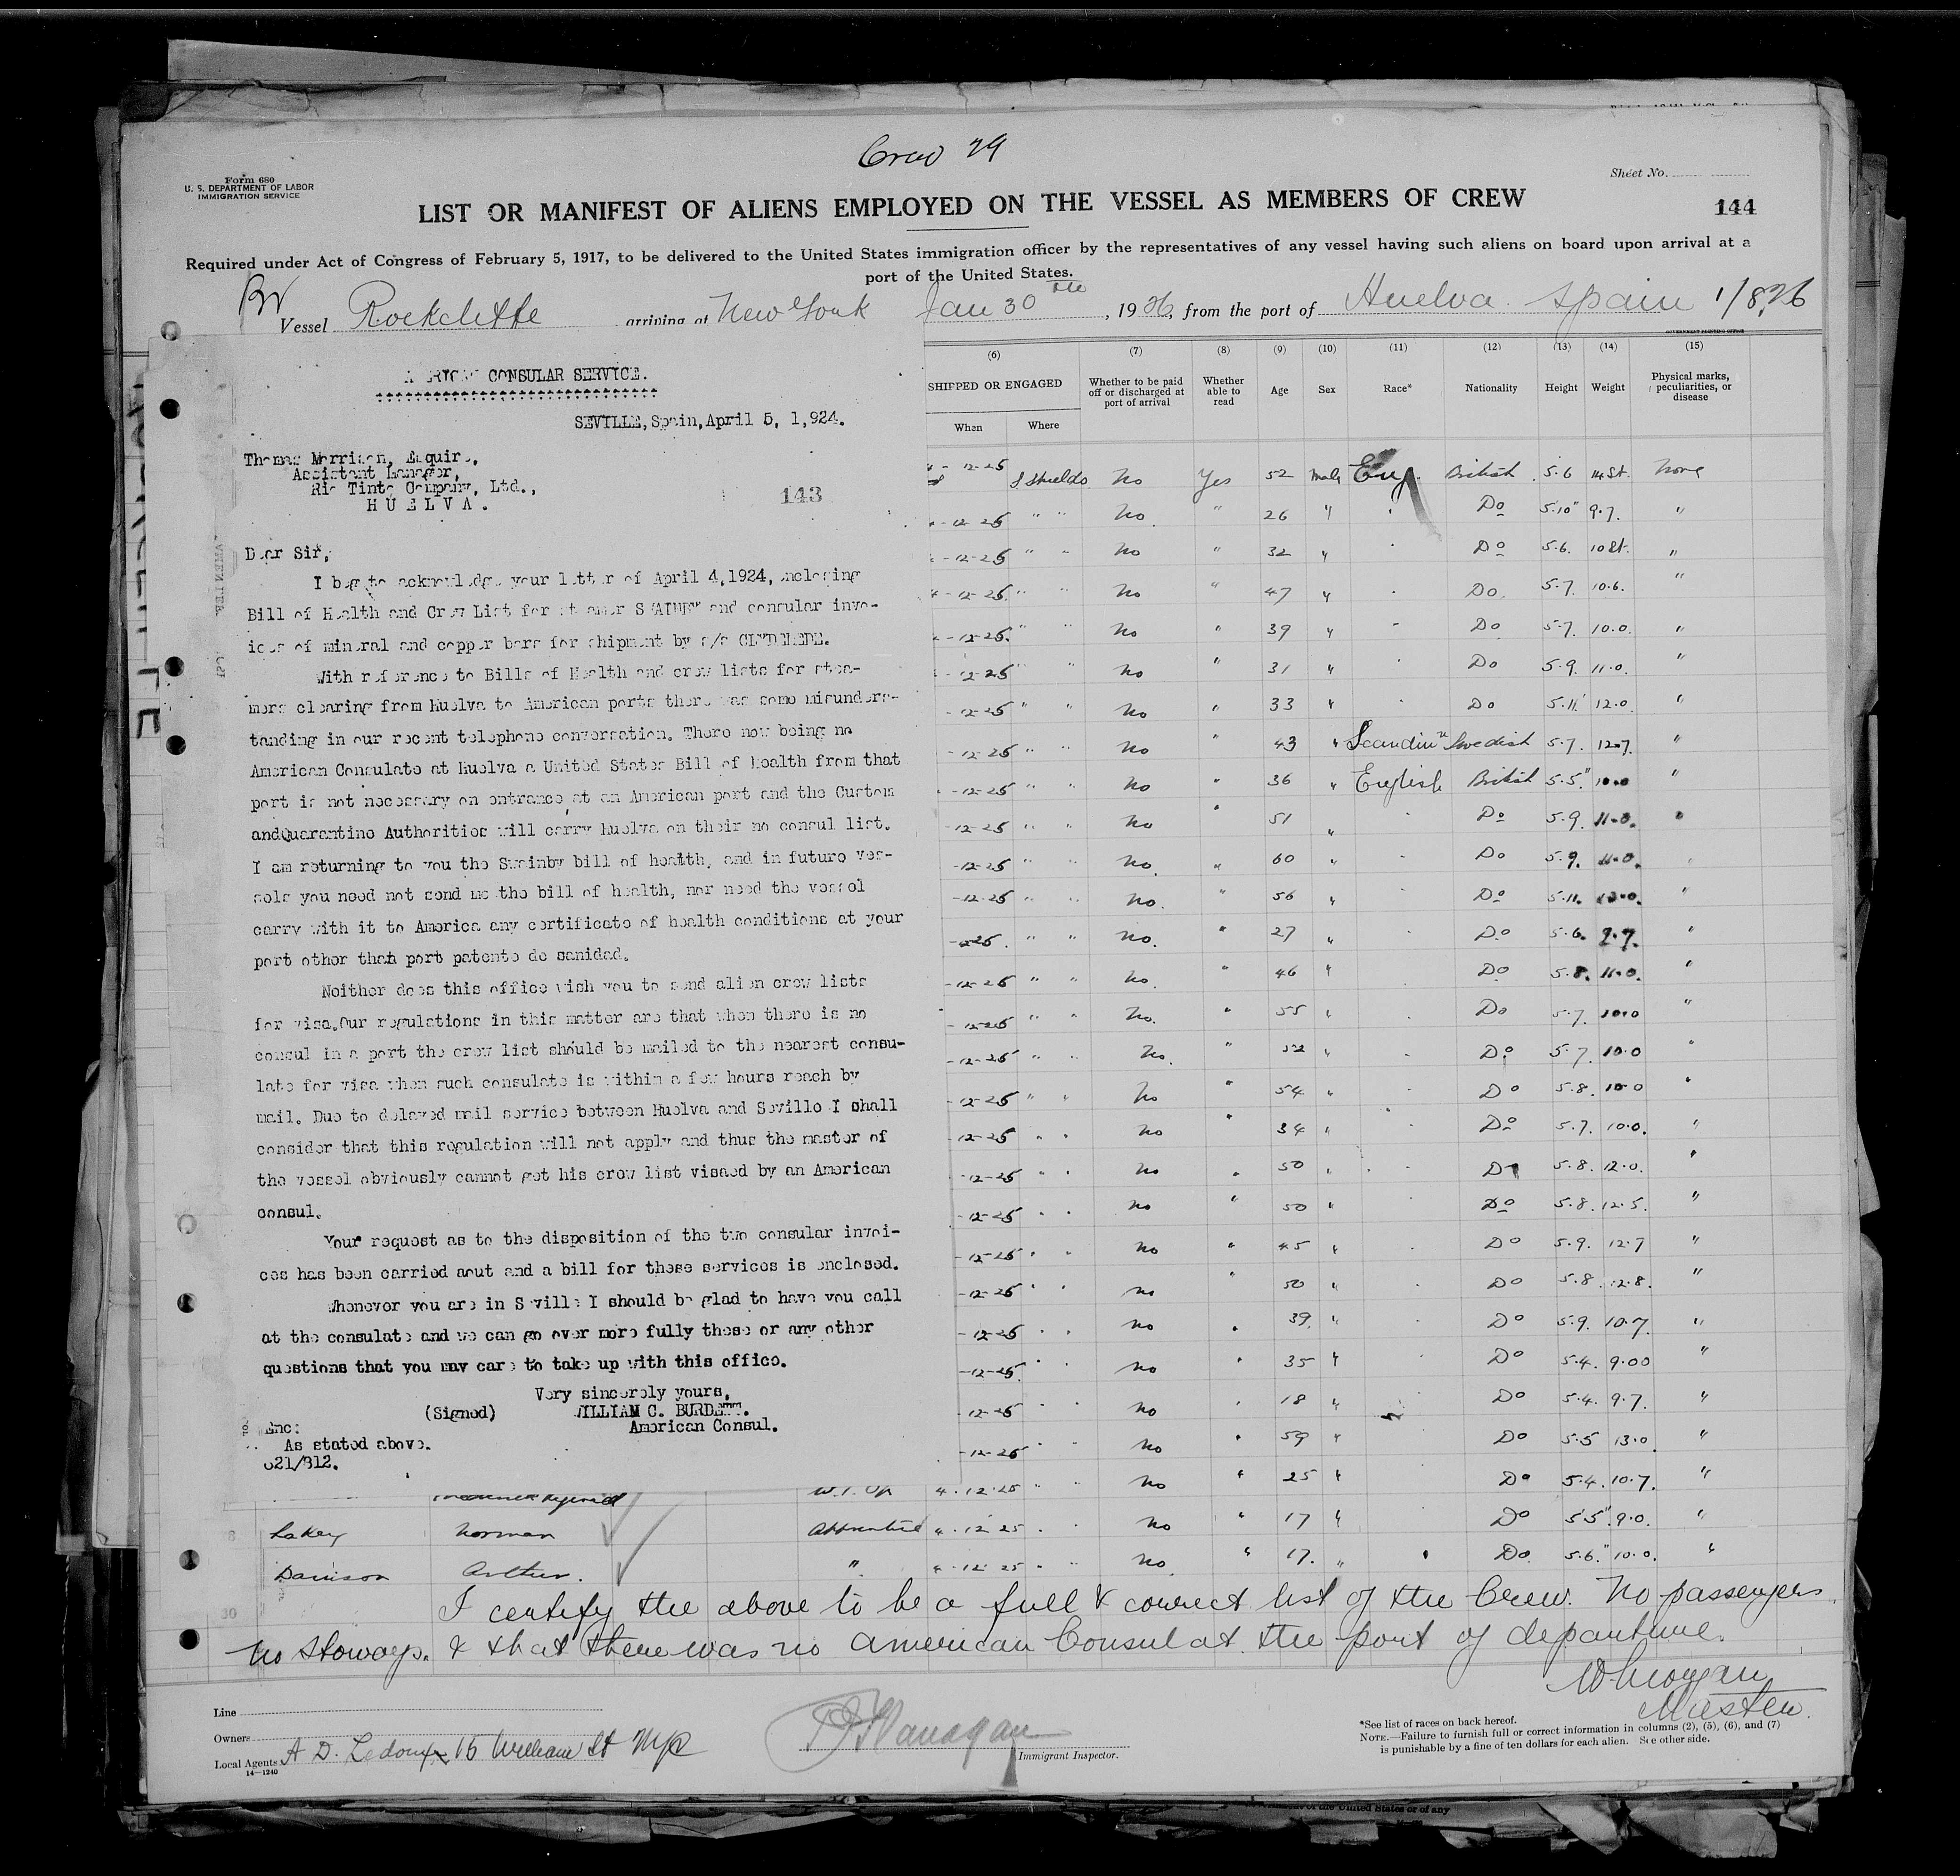 Crew 29
Form 680
U. S. DEPARTMENT OF LABOR
IMMIGRATION SERVICE
Sheet No.
LIST OR MANIFEST OF ALIENS EMPLOYED ON THE VESSEL AS MEMBERS OF CREW
144
Required under Act of Congress of February 5, 1917, to be delivered to the United States immigration officer by the representatives of any vessel having such aliens on board upon arrival at a
port of the United States.
Br Vessel Rockcliffe arriving at New York Jan 30th, 1926, from the port of Huelva Spain 1/8/26
AMERICAN CONSULAR SERVICE.
SEVILLE, Spain, April 5, 1,924.
Thomas Morrison, Esquire,
Assistant Manager,
Rio Tinto Company, Ltd.,
H U E L V A .
143
Dear Sir,
I beg to acknowledge your letter of April 4,1924, enclosing
Bill of Health and Crew List for steamer SWAINBY and consular invo-
ices of mineral and copper bars for shipment by s/s CLYDEHEDE.
With reference to Bills of Health and crew lists for stea-
mers clearing from Huelva to American ports there was some misunders-
tanding in our recent telephone conversation. There now being no
American Consulate at Huelva a United States Bill of Health from that
port is not necessary on entrance at an American port and the Custom
andQuarantine Authorities will carry Huelva on their no consul list.
I am returning to you the Swainby bill of health, and in future ves-
sels you need not send me the bill of health, nor need the vessel
carry with it to America any certificate of health conditions at your
port other than port patente de sanidad.
Neither does this office wish you to send alien crew lists
for visa.Our regulations in this matter are that when there is no
consul in a port the crew list should be mailed to the nearest consu-
late for visa when such consulate is within a few hours reach by
mail. Due to delayed mail service between Huelva and Seville I shall
consider that this regulation will not apply and thus the master of
the vessel obviously cannot get his crew list visaed by an American
consul.
Your request as to the disposition of the two consular invoi-
ces has been carried aout and a bill for these services is enclosed.
Whenever you are in Seville I should be glad to have you call
at the consulate and we can go over more fully these or any other
questions that you may care to take up with this office.
Very sincerely yours,
(Signed) WILLIAM C. BURDETT.
American Consul.
Enc:
As stated above.
621/812.
(6) (7) (8) (9) (10) (11) (12) (13) (14) (15)
SHIPPED OR ENGAGED When Where Whether to be paid off or discharged at port of arrival Whether able to read Age Sex Race* Nationality Height Weight Physical marks, peculiarities, or disease
-12-25 S Shields No Yes 52 Male Eng. British 5.6 14 St. None
-12-25 " " No " 26 " Do 5.10" 9.7. "
-12-25 " " No " 32 " Do 5.6. 10 St. "
-12-25 " " No " 47 " Do. 5.7. 10.6. "
-12-25 " " No " 39 " Do 5.7. 10.0. "
-12-25 " " No " 31 " Do 5.9. 11.0. "
-12-25 " " No " 33 " Do 5.11. 12.0. "
-12-25 " " No " 43 " Scandin n Swedish 5.7. 12.7. "
-12-25 " " No " 36 " English British 5.5" 10.0 "
-12-25 " " No " 51 " Do 5.9. 11.0. "
-12-25 " " No. " 60 " Do 5.9. 11.0. "
-12-25 " " No. " 56 " Do 5.11. "
-25. " " No. " 27 " Do 5.6. 9.7. "
-12-25 " " No. " 46 " Do 5.8. 11.0. "
-12-25 " " No. " 55 " Do 5.7. 10.0 "
-12-25 " " No. " 52 " Do 5.7. 10.0 "
-12-25 " " No " 54 " Do 5.8. 10.0 "
-12-25 " " No " 34 " Do 5.7. 10.0. "
-12-25 " " No " 50 " Do 5.8. 12.0. "
-12-25 " " No " 50 " Do 5.8. 12.5. "
-12-25 " " No " 45 " Do 5.9. 12.7 "
-12-25 " " No " 50 " Do 5.8. 12.8. "
-12-25 " " No " 39. " Do 5.9. 10.7. "
-12-25 " " No " 35 " Do 5.4. 9.00 "
-12-25 " " No " 18 " Do 5.4. 9.7. "
-12-25 " " No " 59 " Do 5.5 13.0. "
4.12.25 " " No " 25 " Do 5.4. 10.7. "
Lakey Norman Apprentice 4.12.25 " " No " 17 " Do 5.5". 9.0. "
Davison Arthur. " 4.12.25 " " No. " 17. " Do. 5.6." 10.0. "
30 I certify the above to be a full & correct list of the Crew. No passengers
No Stoways. & that there was no American Consul at the port of departure.
W Morgan
Master.
Line
Owners
Local Agents A D. Ledoux 15 William St NYC
14—1240
Immigrant Inspector.
*See list of races on back hereof.
NOTE.—Failure to furnish full or correct information in columns (2), (5), (6), and (7)
is punishable by a fine of ten dollars for each alien. See other side.